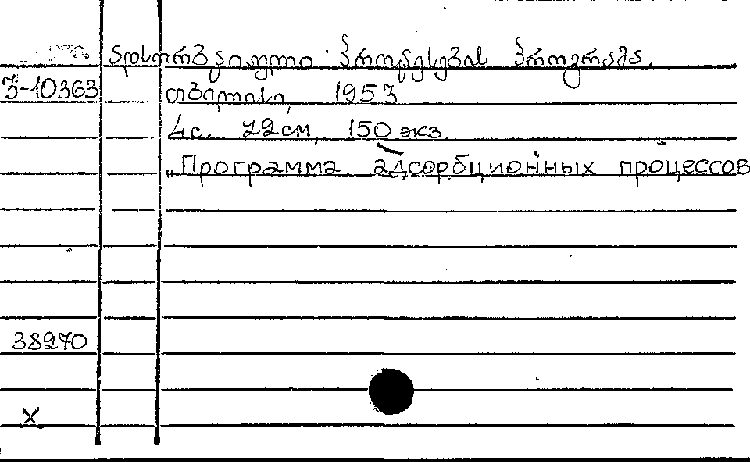 ადსორბციული პროცესების პროგრამა.
Ⴕ-10363 თბილისი, 1953
4с. 22см, 150 экз.
„Программа адсорбционных процессов
38270
X